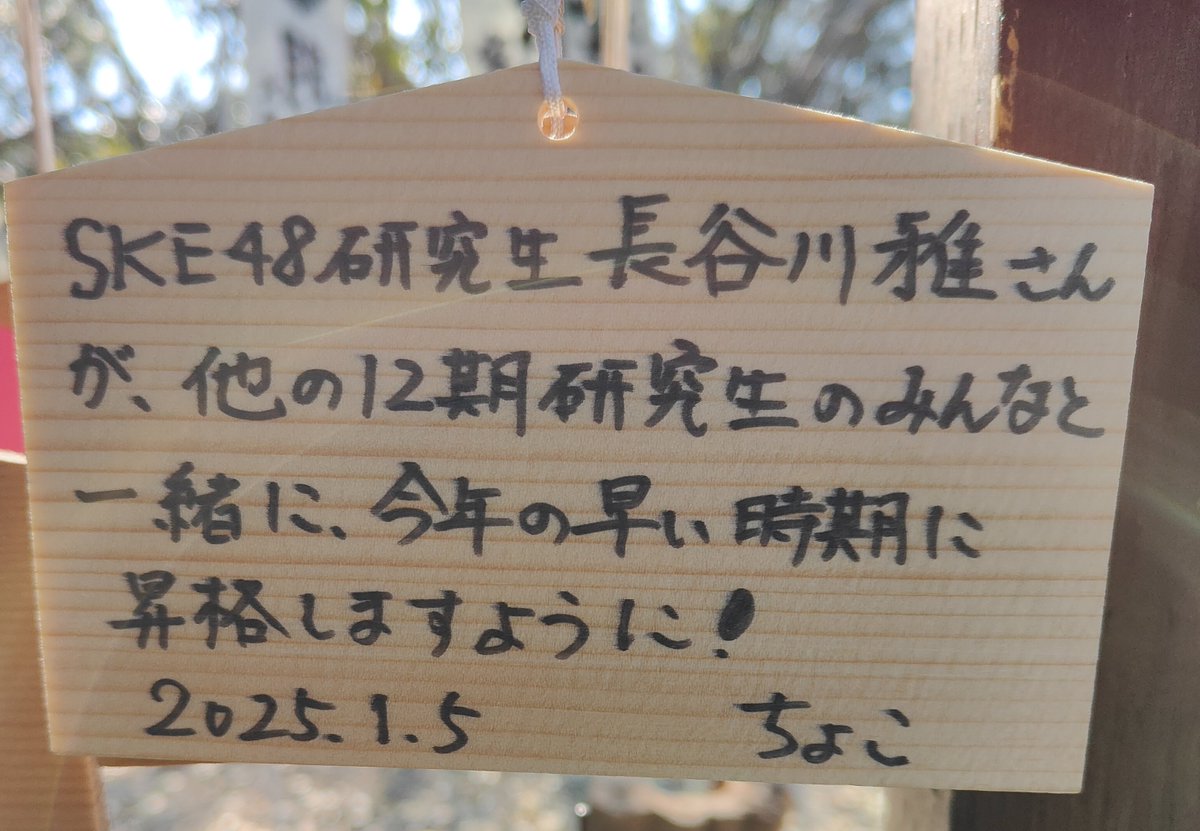 SKE48研究生長谷川雅さん
が、他の12期研究生のみんなと
一緒に、今年の早い時期に
昇格しますように!
2025.1.5 ちよこ